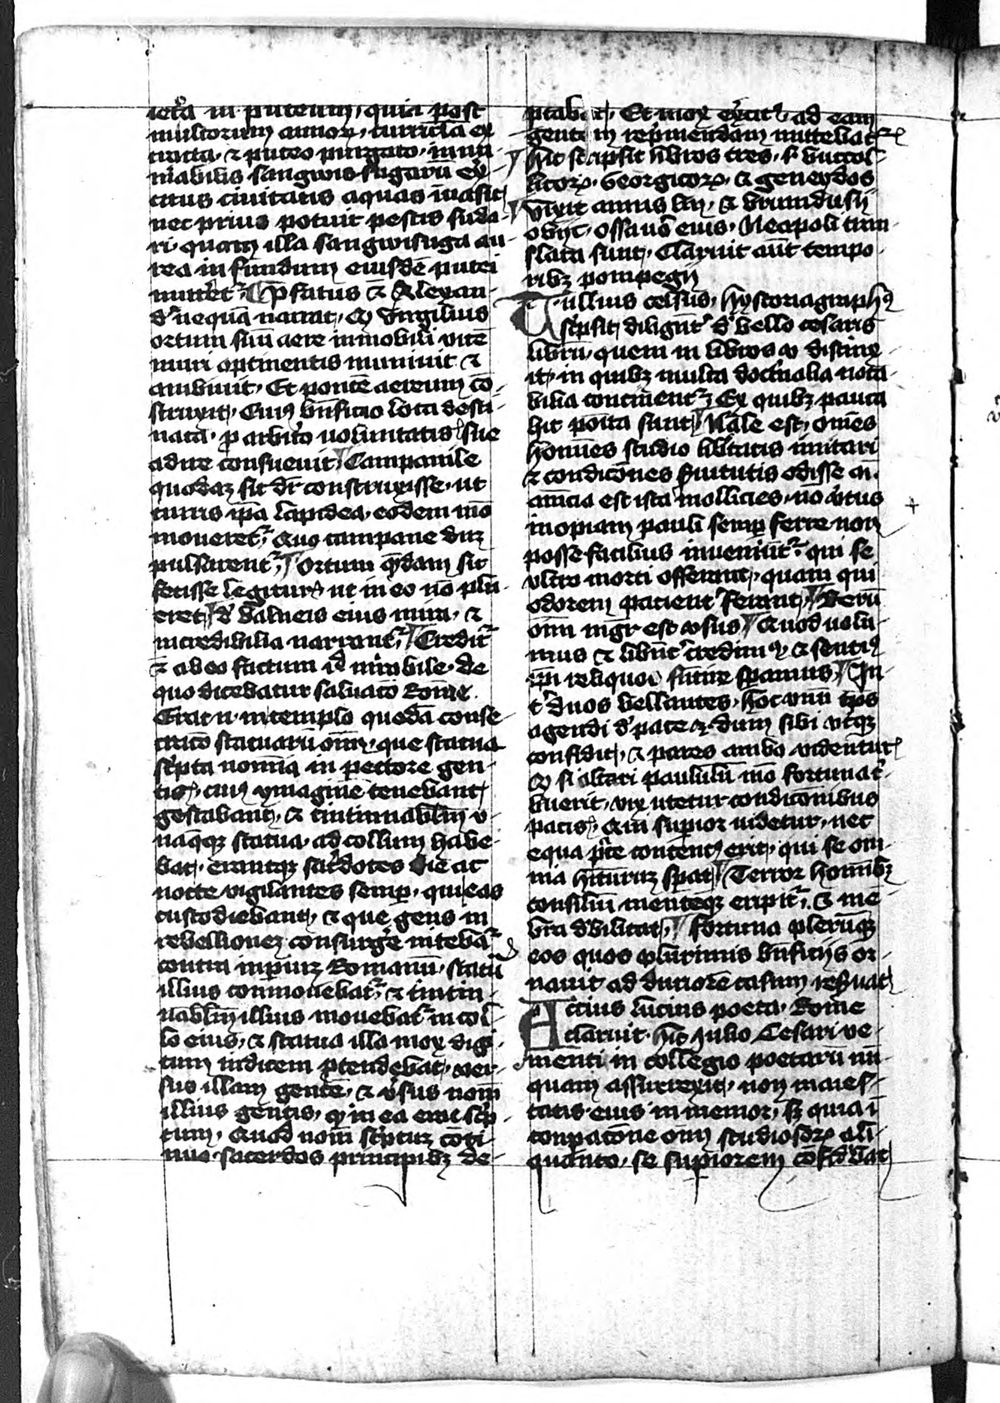 iecta in puteum, quia post
multorum annorꝝ curricula ex
tracta, et puteo purgato, innu
mabilis sangwissugarū exer
citus ciuitatis aquas īuasit
nec prius potuit pestis seda
ri quam illa sangwisuga au
rea in fundum eiusdē putei
mitteret. Prefatus et Alexan
der nequā narrat, qʒ Virgilius
ortum suū aere inmobili vicē
muri optinentis muniuit et
ambiuit. Et pontē aereum cō
struxit, Cuiꝰ bnficio loca desti
nata, p arbitrio voluntatis sue
adire consueuit. Campanile
quodaʒ sic dr construxisse, ut
turris ipa lapidea, eodem mō
moueret, quo campane dum
pulsarent. Ortum qdam sic
fecisse legitur, ut in eo nō plu
eret. de balneis eius mira, et
incredibilia narrant. Creditr
et ab eo factum id mirabile, de
quo dicebatur saluatō Rome.
Erat n. in templo quodā conse
crato statuarū omī, que statua
scripta nomīa in pectore gen
tis, cuiꝰ ymaginē tenebant
gestabant, et tintinnabulm v
naqʒqʒ statua, ad collum habe
bat, erantqʒ sacerdotes die ac
nocte vigilantes semp, qui eas
custodiebant, et que gens in
rebellionem consurgere nitebar
contra inpium Romanū, statū
illius commouebat, et tintin
nabulm illius mouebat in col
lo eius, et statua illa mox digi
tum indicem ptendebat, ver
sus illam gentē, et vsus nom
illius gentis, qʒ in ea erat scrip
tum, Quod nom scriptum conti
nuo sacerdos principibʒ de
ptabat, Et mox exercitꝰ, ad eam
gentē in repmendam mittebat
Hic scripsit libros tres, s. bucol
licorꝝ, Georgicorꝝ, et geneydos
vixit annis lii, et brundusii
obijt, Ossa vō eius, Neapoli tran
slata sunt, Claruit aūt tempo
ribʒ pompegij
Tullius celsus, hystoriagraphꝰ
scripsit diligent de bello cesaris
librū, quem in libros v disting
it, in quibʒ multa doctrinalia nota
bilia continent Ex quibʒ pauca
hic posita sunt Nale est, omēs
homines studio libertatis imitari
et condicōnes seruitutis odisse ai.
amicia est ista mollicies, nō virtus
inopiam pauli semp ferre non
posse facilius inueniūt, qui se
vltro morti offerant, quam qui
odorem pacient ferant, Rerū
omī mgr est vsus Quod volu
mus et libnt credimꝰ et sentiꝰ
 reliquos sentire speramus In
t duos bellantes, hoc vnū tps
agendi de pace est, dum sibi vterqʒ
confidit, et pares ambo vident
Qʒ si alteri paululū mō fortuna t
buerit, vix vtetur condicōnibus
pacis, qui supior videtur, nec
equa pte contentꝰ erit, qui se om
nia habiturum sperat Terror hominibʒ
consiliū mentēqʒ eripit, et me
bra debilitat, fortuna plerūqʒ
eos quos plurimis bnficijs or
nauit ad duriorē casum reseruat
Accius lucius poeta, Rome
claruit, hic Julio Cesari ve
nienti in collegio poetarū nū
quam assurrexit, non maies
tatis eius inmemor, sʒ quia ī
conpacōne omī studiosorꝝ ali
quanto, se supiorem cōfidebat